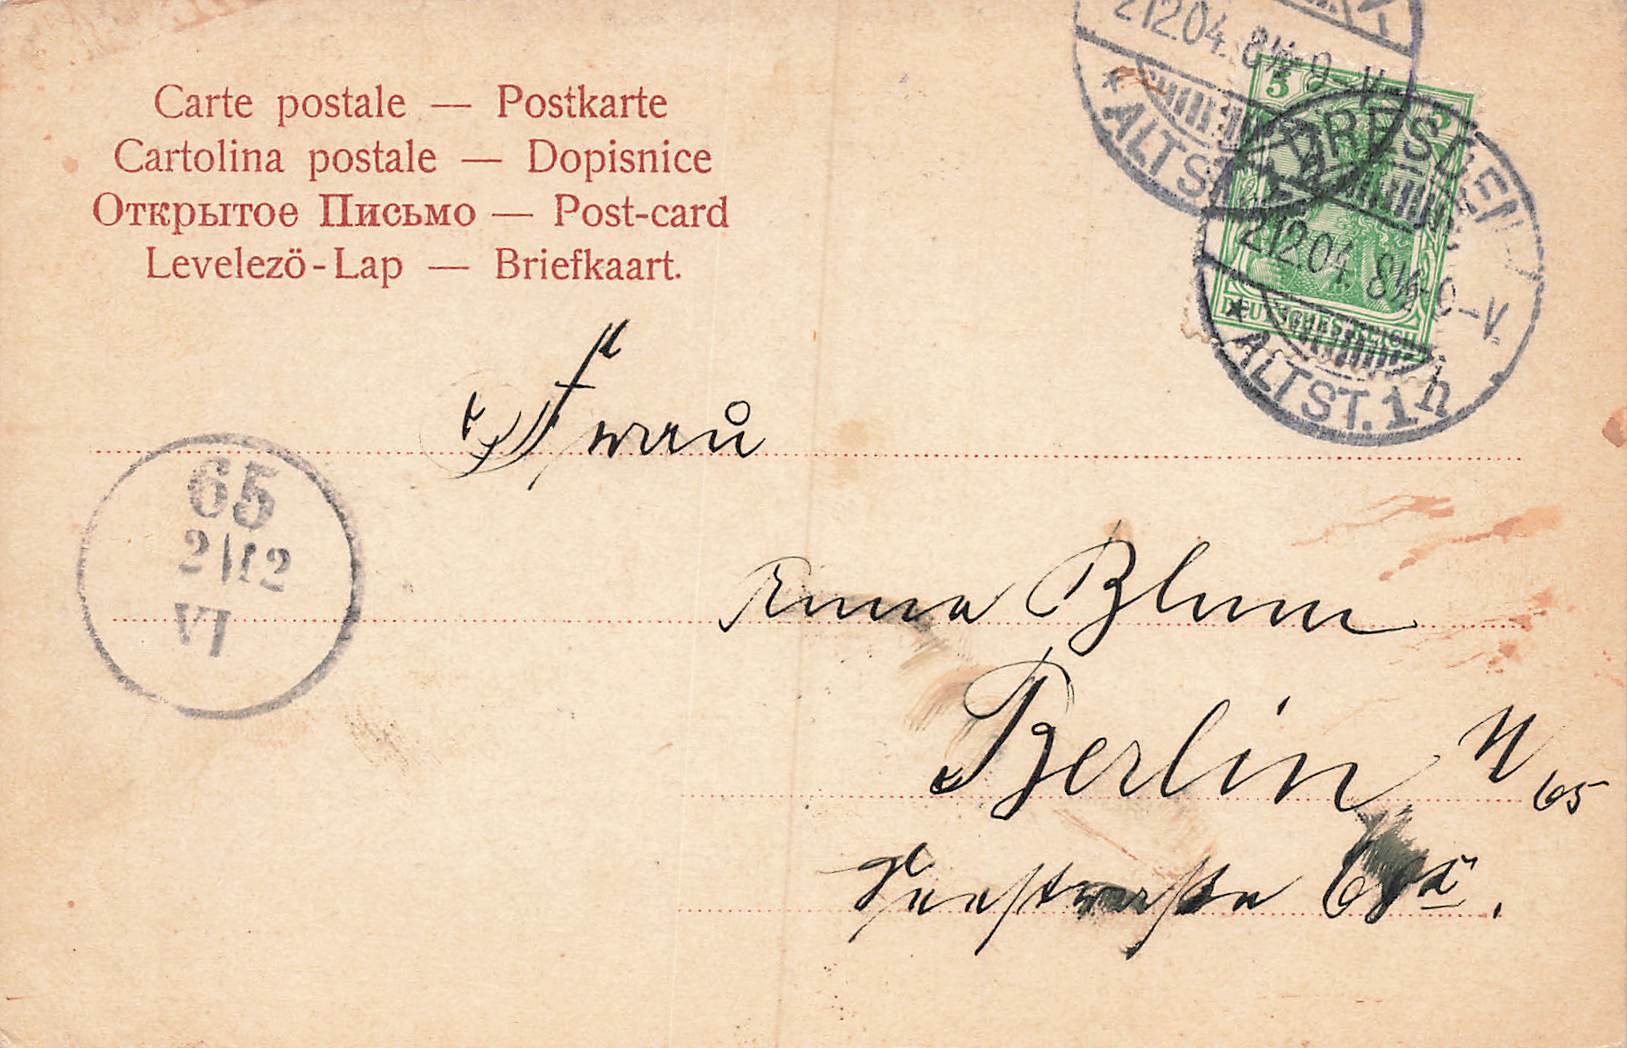 Carte postale — Postkarte
Cartolina postale — Dopisnice
Открытое Письмо — Post-card
Levelezö-Lap — Briefkaart.
2.12.04. 8½-9-V.
* ALTST.
5 5
DEUTSCHES REICH
DRESDEN
2.12.04. 8½-9-V.
* ALTST. 1 n
65
2/12
VI
Frau
Anna Blum
Berlin N
65